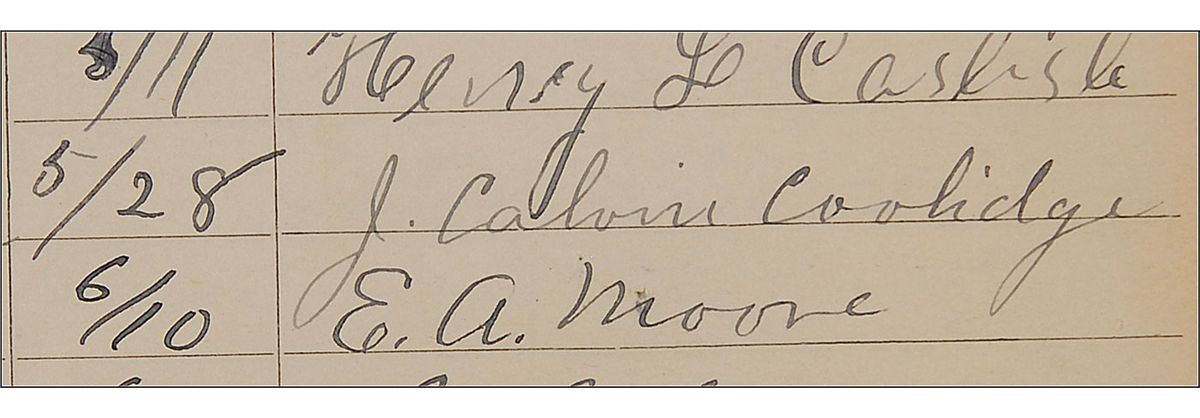 5/11 Henry L Carlisle
5/28 J. Calvin Coolidge
6/10 E. A. Moore